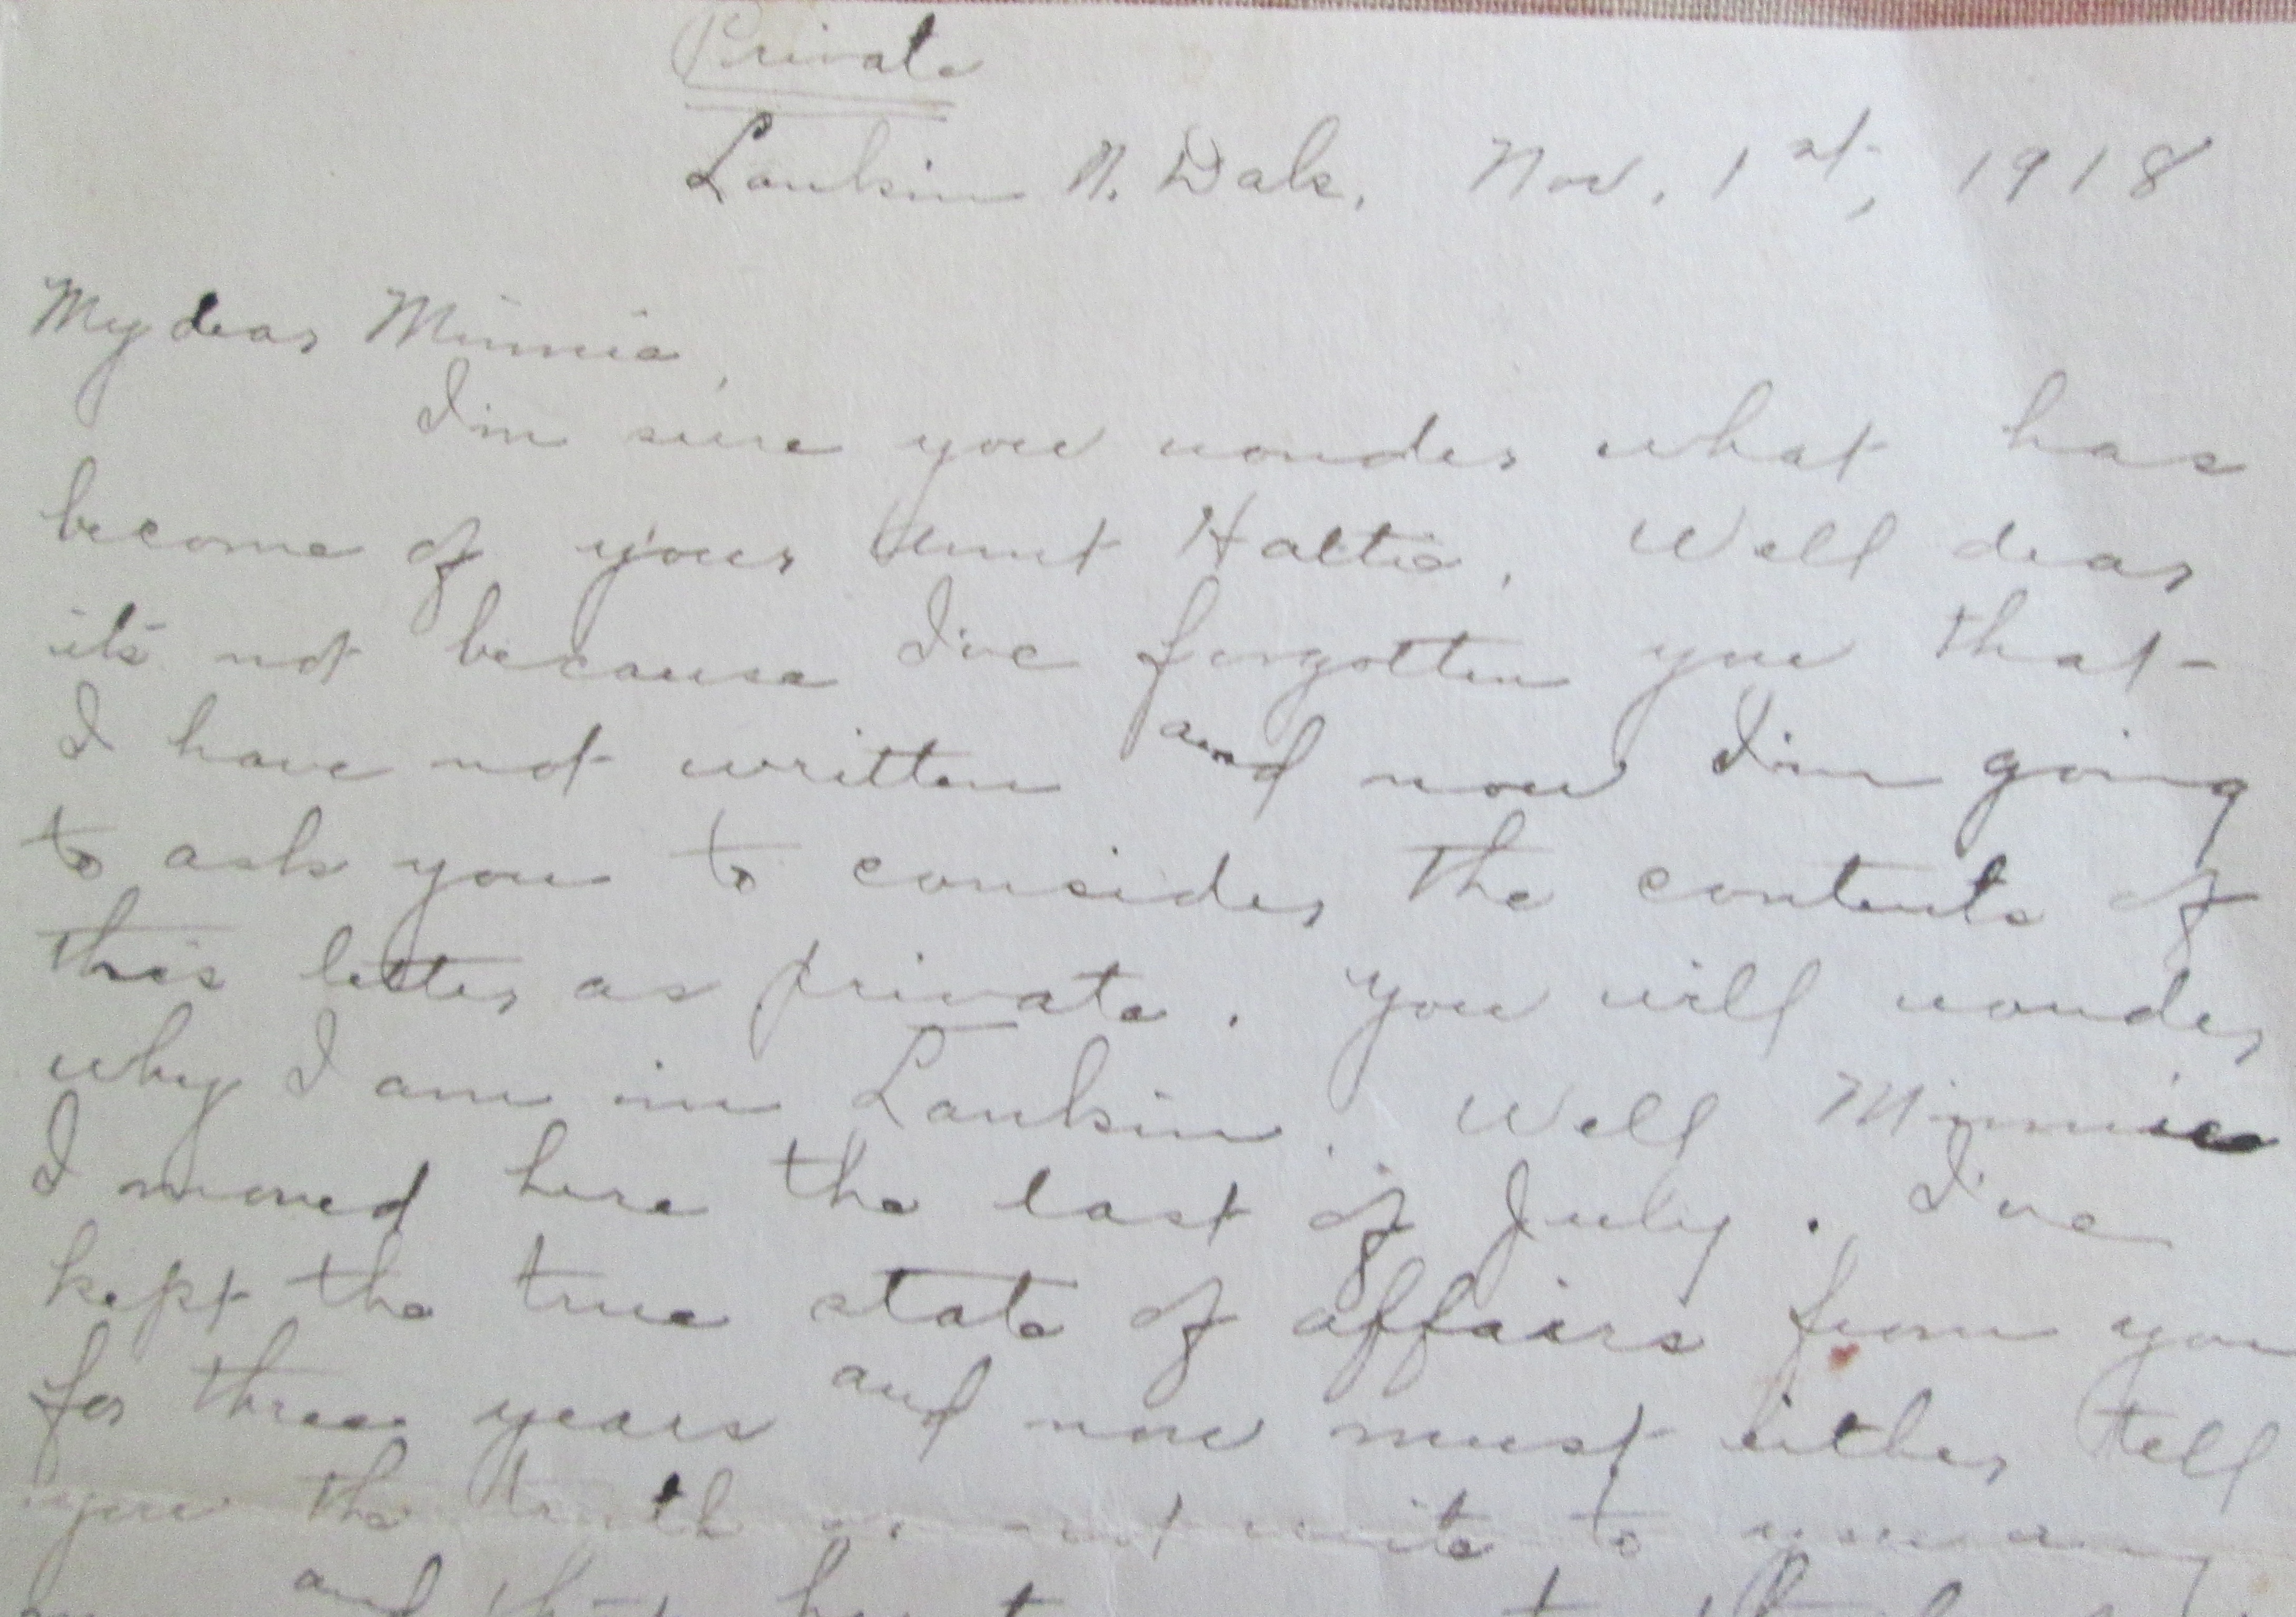 Private
Lankin N. Dak. Nov. 1st, 1918
My dear Minnie,
I'm sure you wonder what has
become of your Aunt Hattie. Well dear
it's not because I've forgotten you that
I have not written and now I'm going
to ask you to consider the contents of
this letter as private. You will wonder
why I am in Lankin. Well Minnie
I moved here the last of July. I've
kept the true state of affairs from you
for three years and now must either tell
you the truth or not write to you any
and